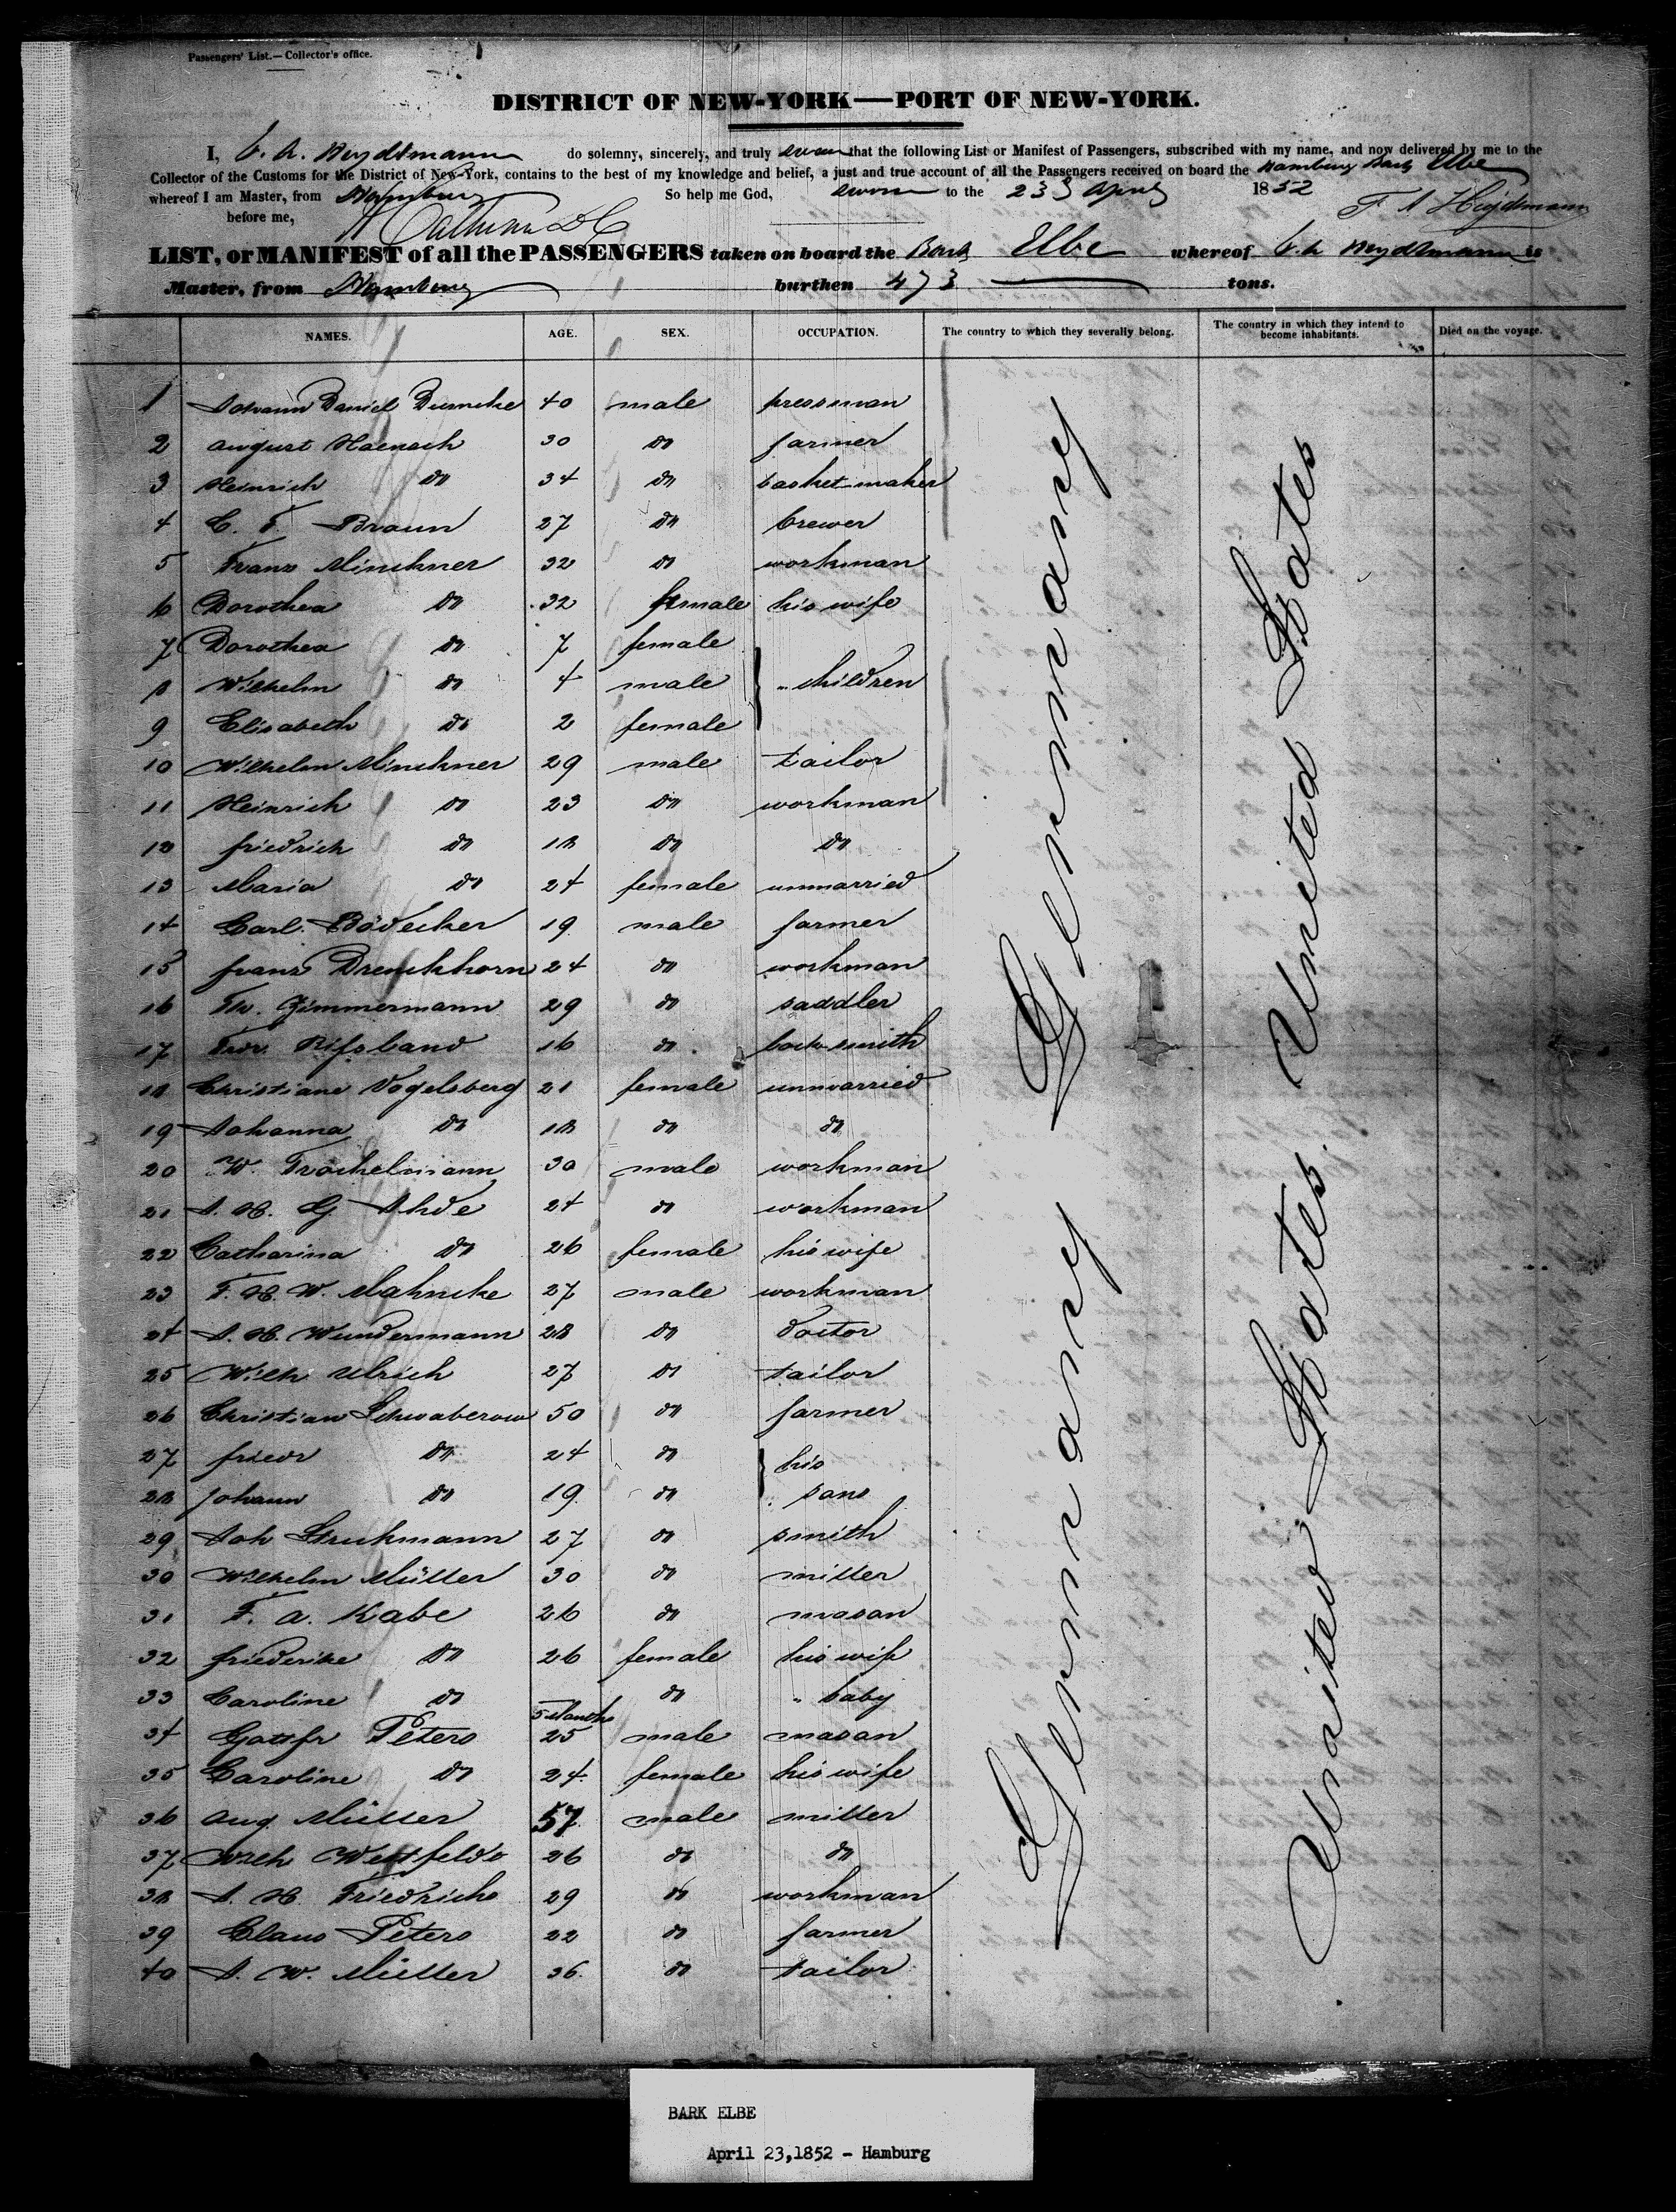 Passengers' List.—Collector's office.
DISTRICT OF NEW-YORK—PORT OF NEW-YORK.
I, do solemny, sincerely, and truly swear that the following List or Manifest of Passengers, subscribed with my name, and now delivered by me to the
Collector of the Customs for the District of New-York, contains to the best of my knowledge and belief, a just and true account of all the Passengers received on board the Hamburg Bark Elbe
whereof I am Master, from Hamburg So help me God, sworn to the 23 April 1852
before me,
LIST, or MANIFEST of all the PASSENGERS taken on board the Bark Elbe whereof is
Master, from Hamburg burthen 473 tons.
NAMES. AGE. SEX. OCCUPATION. The country to which they severally belong. The country in which they intend to become inhabitants. Died on the voyage.
1 Johann Daniel 40 male pressman
2 August Haenech 30 do farmer
3 Heinrich do 34 do basket-maker
4 C. F. Braun 27 do brewer
5 Franz Minckner 32 do workman
6 Dorothea do 32 female his wife
7 Dorothea do 7 female
8 Wilhelm do 4 male " children
9 Elisabeth do 2 female
10 Wilhelm Minckner 29 male tailor
11 Heinrich do 23 do workman
12 friedrich do 18 do do
13 Maria do 24 female unmarried
14 Carl Bödecker 19 male farmer
15 franz Drenckhorn 24 do workman
16 Th. Zimmermann 29 do saddler
17 16 do smith
18 Christiane Vogelsberg 21 female unmarried
19 Johanna do 18 do do
20 W. Trochelmann 30 male workman
21 J. H. G. Ahde 24 do workman
22 Catharina do 26 female his wife
23 F. H. W. Mahncke 27 male workman
24 J. H. Wundermann 28 do doctor
25 Wilh. Ulrich 27 do tailor
26 Christian Schwaberow 50 do farmer
27 friedr do 24 do his
28 Johann do 19 do sons
29 Joh 27 do smith
30 Wilhelm Müller 30 do miller
31 F. A. Kabe 26 do mason
32 friederike do 26 female his wife
33 Caroline do 5 Months do " baby
34 Gottfr Peters 25 male mason
35 Caroline do 24 female his wife
36 Aug Müller 57 male miller
37 Wilh Westfeldt 26 do do
38 J. H. Friedrichs 29 do workman
39 Claus Peters 22 do farmer
40 J. W. Müller 36 do tailor
Germany Germany
United States. United States
BARK ELBE
April 23,1852 - Hamburg